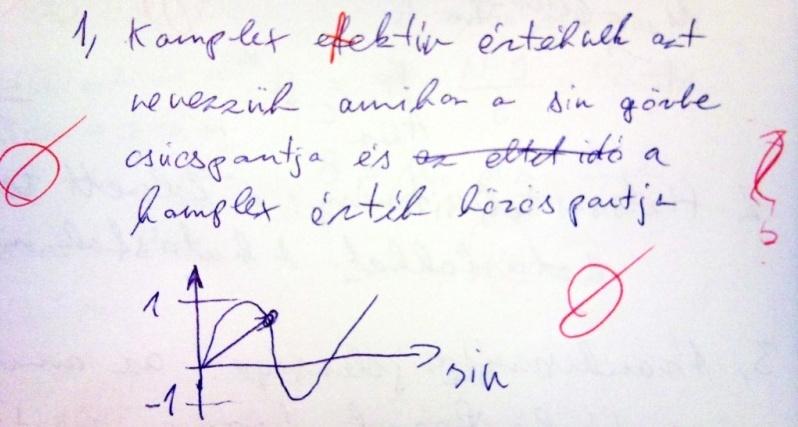 1, Komplex effektív értéknek azt
nevezzük amikor a sin görbe
csúcspontja és az eltelt idő a
komplex érték közös pontja
1
-1
sin